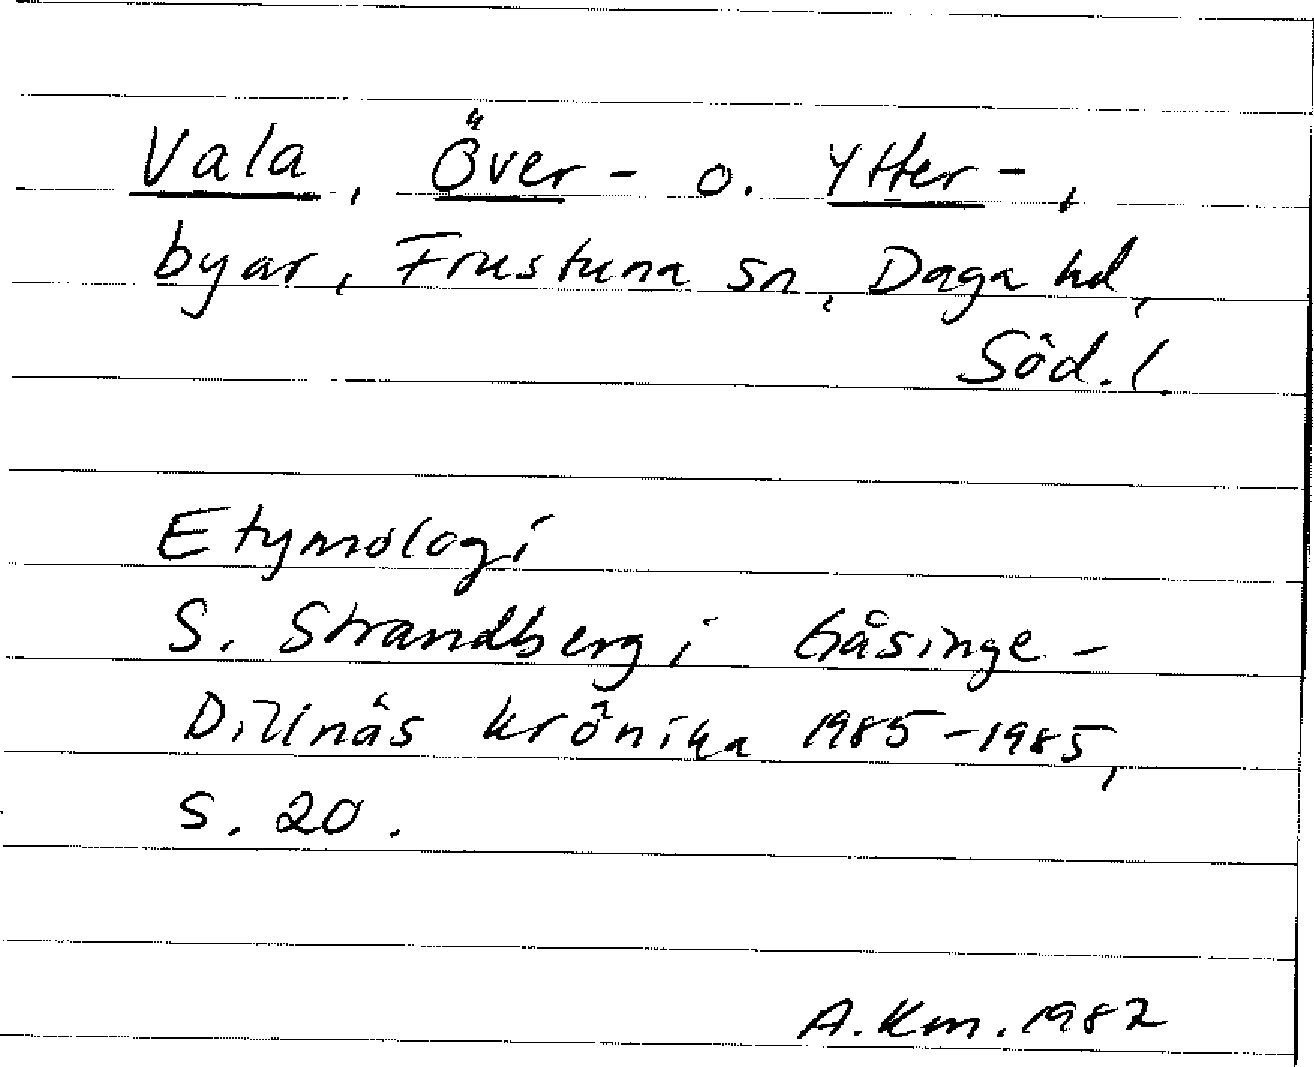 Vala, Över- o. Ytter-,
byar, Frustuna sn, Daga hd,
Söd.l.
Etymologi
S. Strandberg i Gåsinge-
Dillnäs krönika 1985-1985,
s. 20.
A.Km. 1987